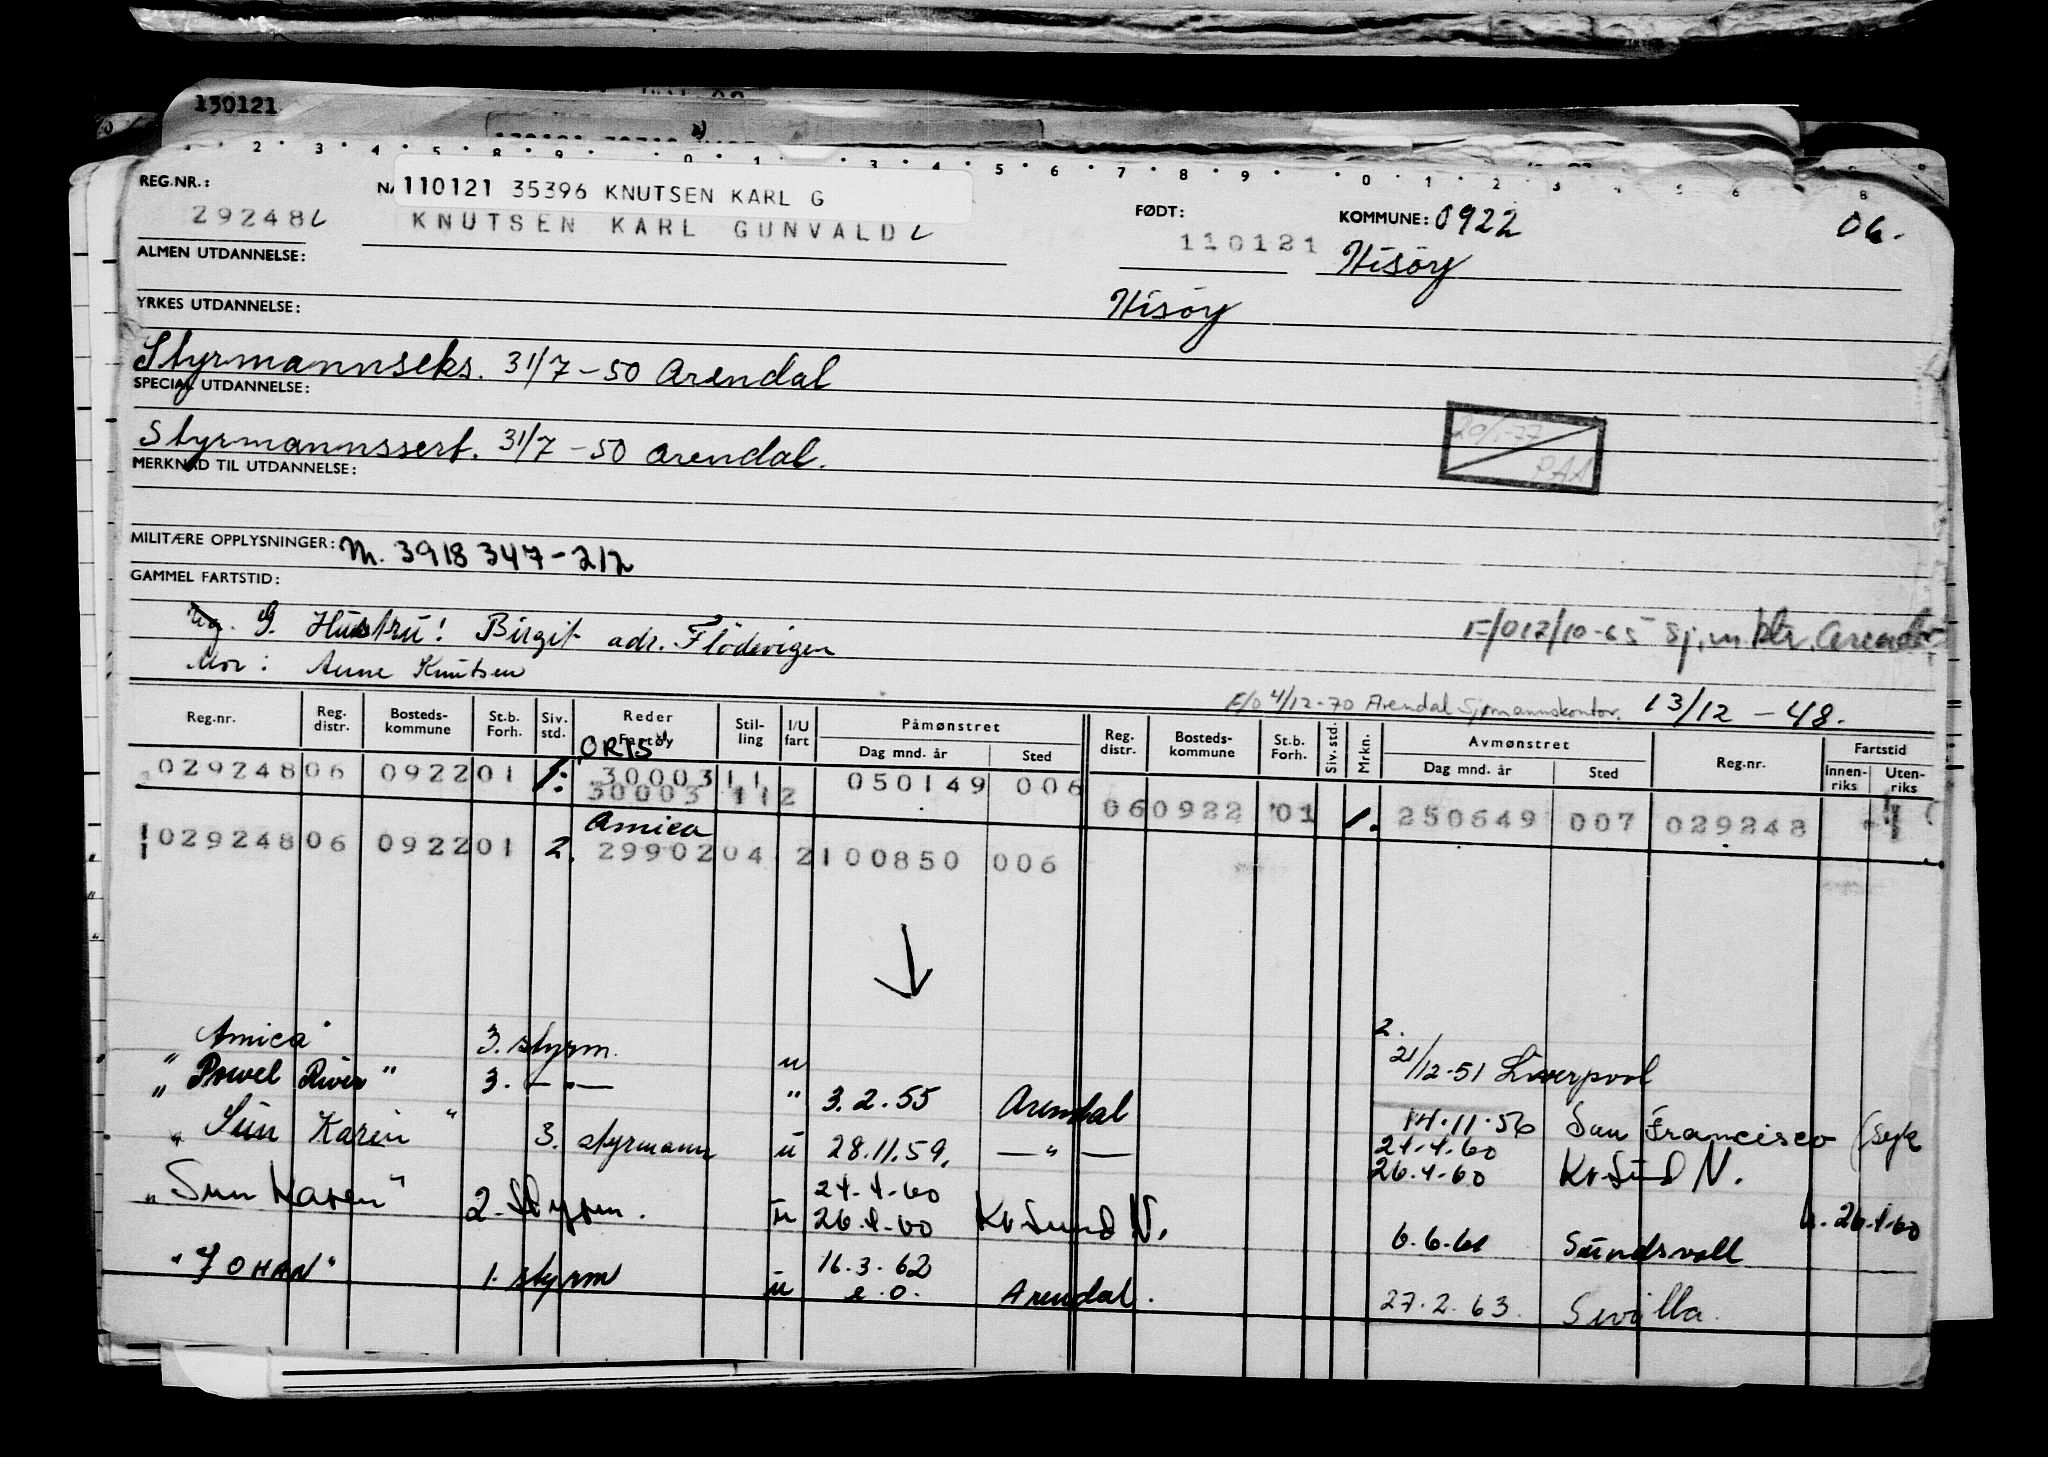 130121
2 3 4 5 8 9 0 1 3 4 5 6 7 8 9 0 1 2 3 4 5 6 8
REG.NR.: 110121 35396 KNUTSEN KARL G FØDT: KOMMUNE: 0922 06.
29248 KNUTSEN KARL GUNVALD 110121 Hisöy
ALMEN UTDANNELSE:
Hisöy
YRKES UTDANNELSE:
Styrmannseks. 31/7-50 Arendal
SPECIAL UTDANNELSE:
Styrmannssert. 31/7-50 Arendal.
MERKNAD TIL UTDANNELSE:
PAA
MILITÆRE OPPLYSNINGER: M. 3918 347-212
GAMMEL FARTSTID:
G. Hustru! Birgit adr. Flödevigen
F/O 12/10-65 Sj.m.ktr. Arendal
Mor: Anne Knutsen
F/o 4/12-70 Arendal Sjømannskontor. 13/12-48.
Reg.nr. Reg. distr. Bosteds-kommune St.b. Forh. Siv. std. Reder Fartøy Stil-ling I/U fart Påmønstret Dag mnd. år Sted Reg. distr. Bosteds-kommune St.b. Forh. Siv. std. Mrkn. Avmønstret Dag mnd. år Sted Reg.nr. Fartstid Innen-riks Uten-riks
"ORIS"
029248 06 0922 01 1. 30003 11 050149 006
30003 11 2
06 0922 01 1. 250649 007 029248
Amica
029248 06 0922 01 2. 29902 04 2 100850 006
"Amica" 3. styrm. u 2. 21/12-51 Liverpool
"Powel River" 3. —"— " 3.2.55 Arendal 14.11.56 San Francisco (syk
"Sun Karen" 3. styrmann u 28.11.59. —"— 24.4.60 26.4.60 Kr.Sund N.
"Sun Karen" 2. Styrm. u 24.4.60 26.4.60 Kr.Sund N. 6.6.61 Sundsvall 26.4.60
"JOHAN" 1. styrm u 16.3.62 e.o. Arendal. 27.2.63. Sevilla.